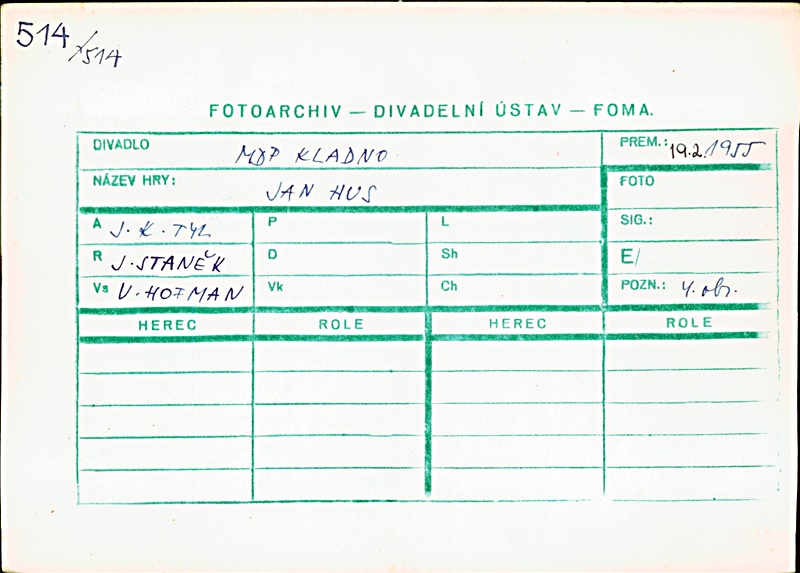 514 /514
FOTOARCHIV — DIVADELNÍ ÚSTAV — FOMA.
DIVADLO MDP KLADNO PREM.: 19.2.1955
NÁZEV HRY: JAN HUS FOTO
A J.K.TYL P L SIG.:
R J.STANĚK D Sh E/
Vs V.HOFMAN Vk Ch POZN.: 4.obr.
HEREC ROLE HEREC ROLE